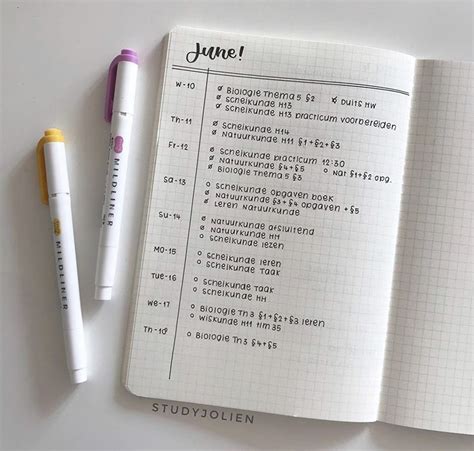 June!
W-10
ø Biologie Thema 5 §2 ø Duits HW
ø Scheikunde H13
ø Scheikunde H13 practicum voorbereiden
Th-11
ø Scheikunde H14
ø Natuurkunde H11 §1+§2+§3
Fr-12
ø Scheikunde practicum 12:30
ø Natuurkunde §1+§2+§3 o Nat §1+§2 opg.
ø Biologie Thema 5 §3
Sa-13
o Scheikunde opgaven boek
ø Natuurkunde §3+§4 opgaven +§5
ø Leren Natuurkunde
Su-14
ø Natuurkunde afsluitend
ø Natuurkunde H11
o Scheikunde lezen
Mo-15
o Scheikunde leren
o Scheikunde taak
Tue-16
o Scheikunde taak
o Scheikunde HH
We-17
o Biologie Th3 §1+§2+§3 leren
o Wiskunde H11 t/m 35
Th-18
o Biologie Th3 §4+§5
MILDLINER
MILDLINER
STUDYJOLIEN